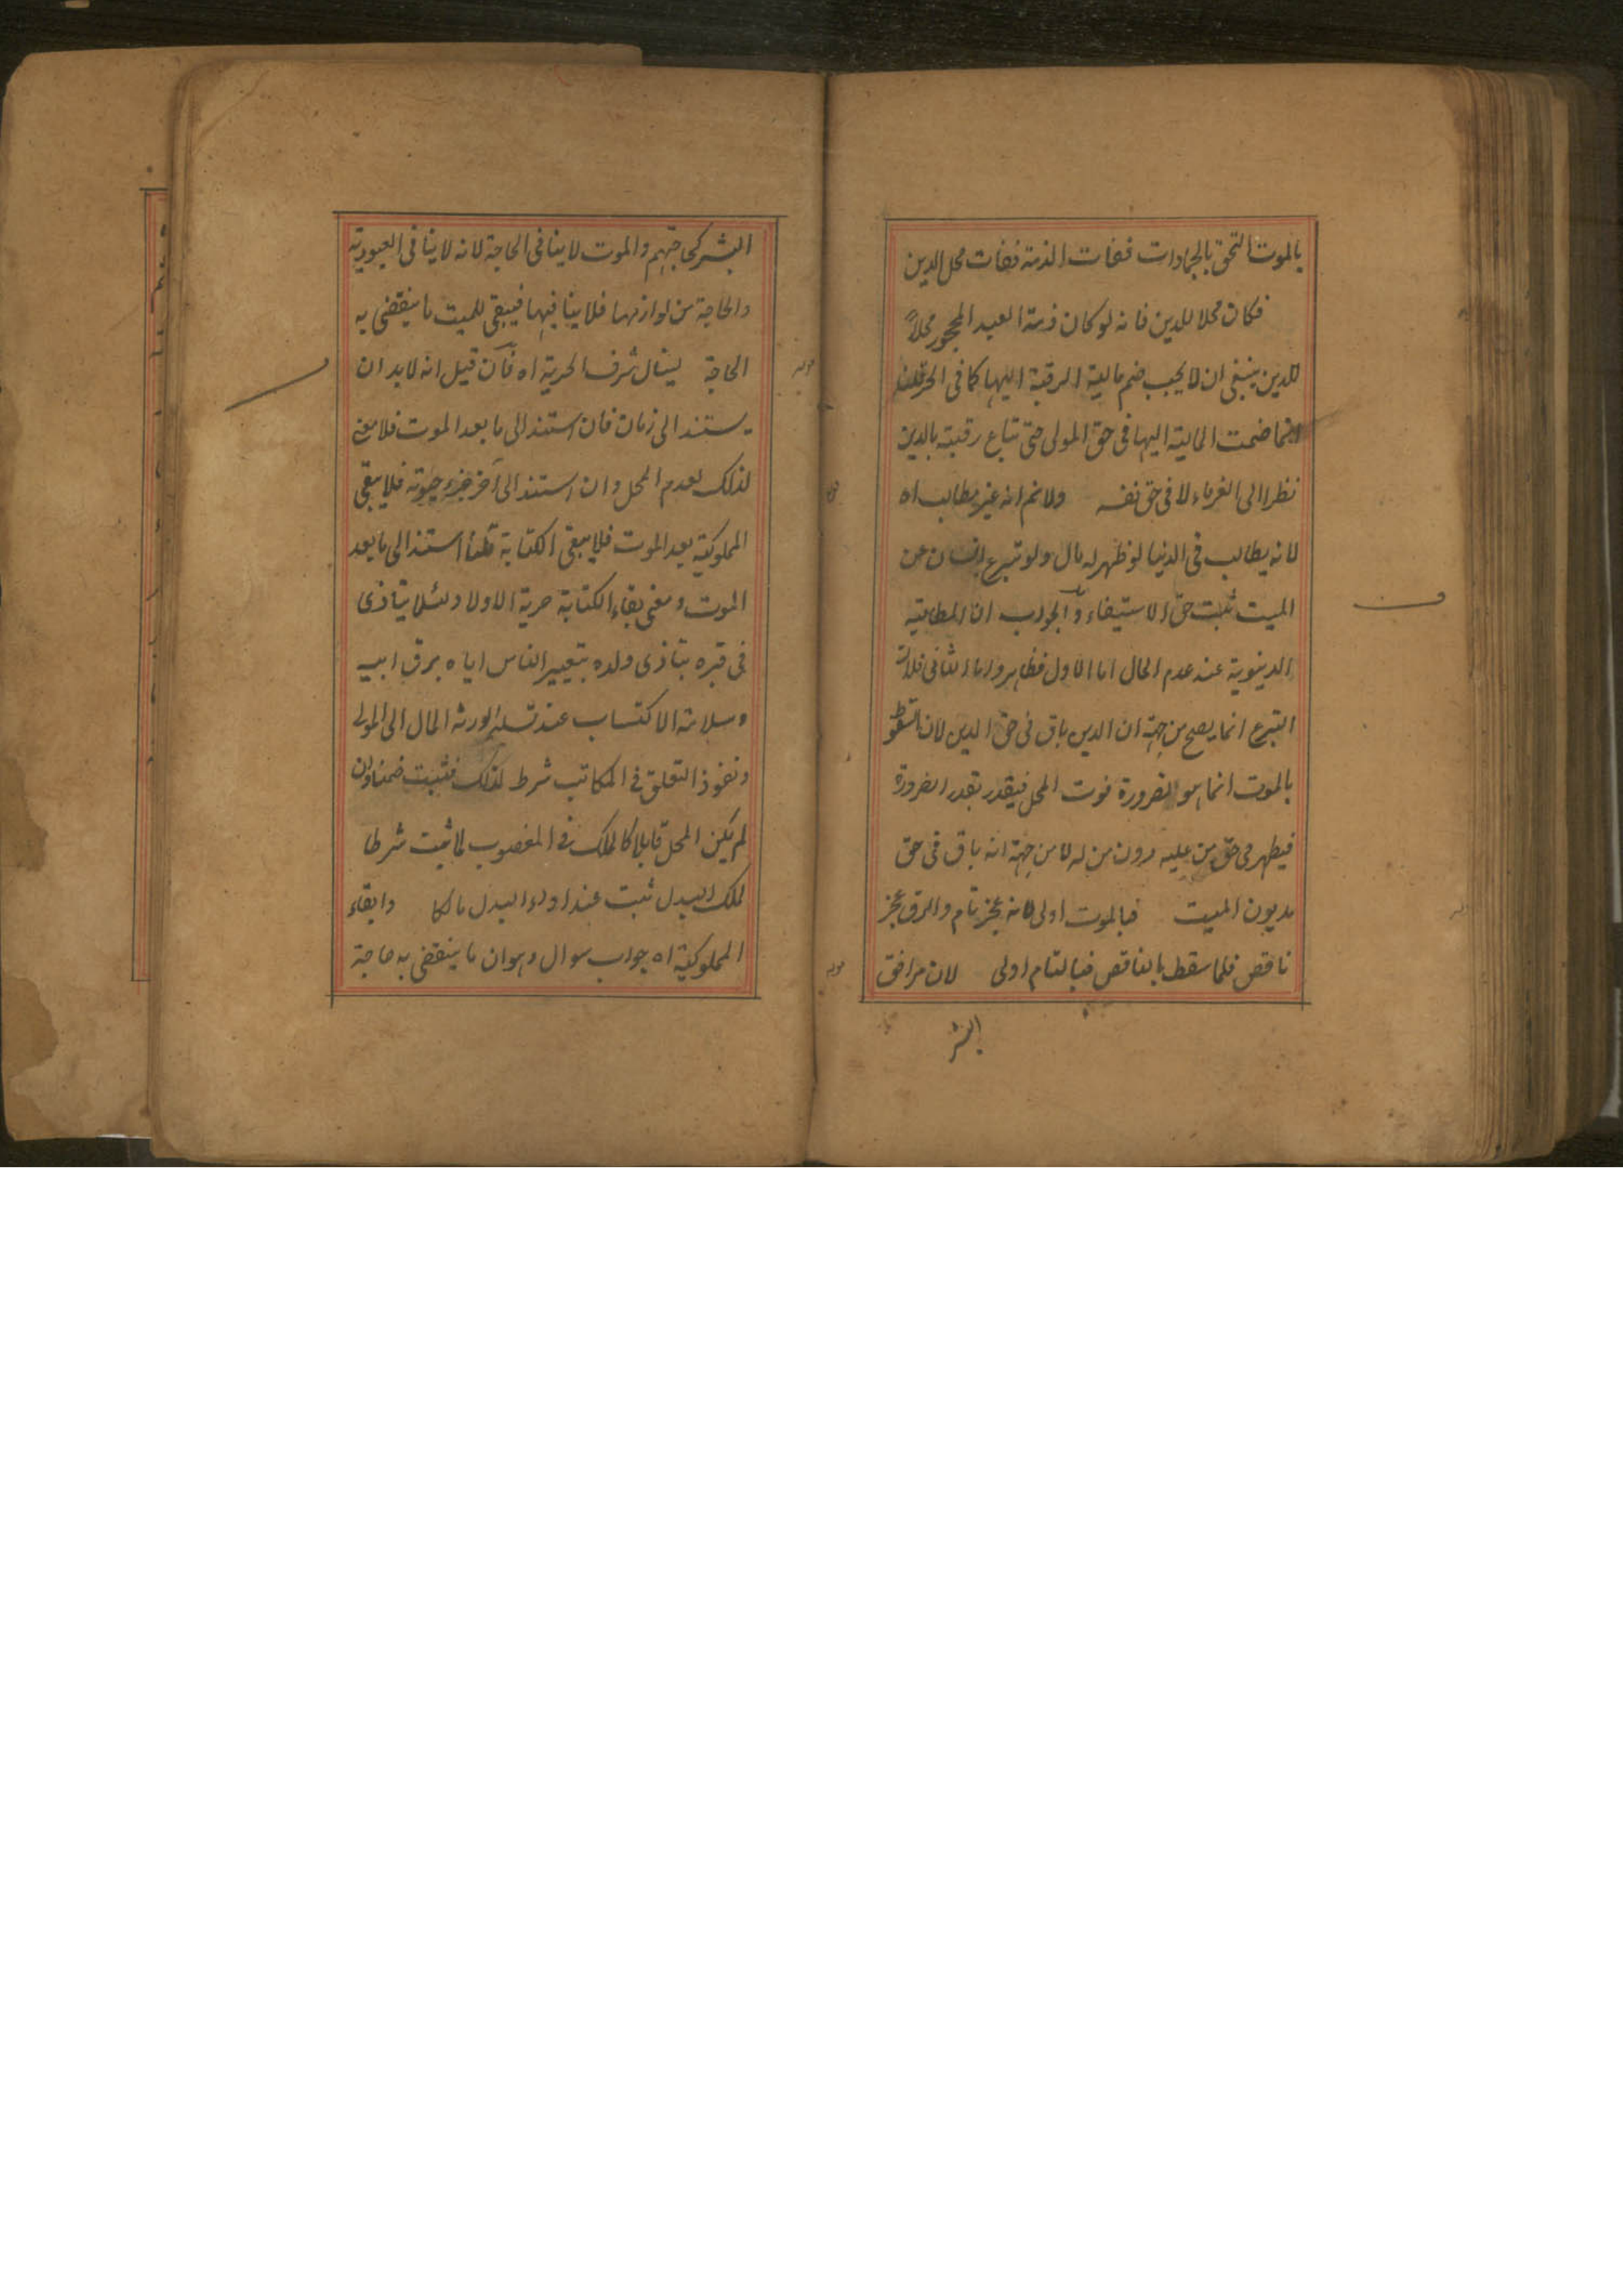 بالموت التحق بالجمادات ففات الذمة ففات محل الدين
فكان محلا للدين فانه لو كان ذمة العبد المحجور محلاً
للدين ينبغي ان لا يجب ضم مالية الرقبة اليها كما في الحر قلنا
انما ضمت المالية اليها في حق المولى حتى تباع رقبته بالدين
نظرا الى الغرماء لا في حق نفسه ولا نم انه غير مطالب اه
لانه يطالب في الدنيا لو ظهر له مال ولو تبرع انسان عن
الميت ثبت حق الاستيفاء والجواب ان المطالبة
الدنيوية عند عدم المال اما الاول فظاهر واما الثاني فلان
التبرع انما يصح من جهة ان الدين باق في حق الدين لان السقوط
بالموت انما هو لضرورة فوت المحل فيقدر بقدر الضرورة
فيظهر في حق من عليه دون من له لا من جهة انه باق في حق
مديون الميت فبالموت اولى لانه عجز تام والرق عجز
ناقص فلما سقط بالناقص فبالتام اولى لان مرافق
البشر
البشر لحاجتهم والموت لا ينافي الحاجة لانه لا ينافي العبودية
والحاجة من لوازمها فلا ينافيها فيبقى للميت ما ينقضي به
الحاجة لينال شرف الحرية اه فان قيل انه لابد ان
يستند الى زمان فان استند الى ما بعد الموت فلا معنى
لذلك لعدم المحل وان استند الى آخر جزء حيوته فلا يبقى
المملوكية بعد الموت فلا يبقى الكتابة قلنا استند الى ما بعد
الموت ومعنى بقاء الكتابة حرية الاولاد لئلا يتاذى
في قبره بتاذى ولده بتعيير الناس اياه برق ابيه
وسلامة الاكتساب عند تسليم الورثة المال الى المولى
ونفوذ التعلق في المكاتب شرط لذلك فثبت ضمنا وان
لم يكن المحل قابلا كالملك في المغصوب لما ثبت شرطا
لملك البدل ثبت عند اداء البدل مالكا وابقاء
المملوكية اه جواب سوال وهو ان ما ينقضي به حاجة